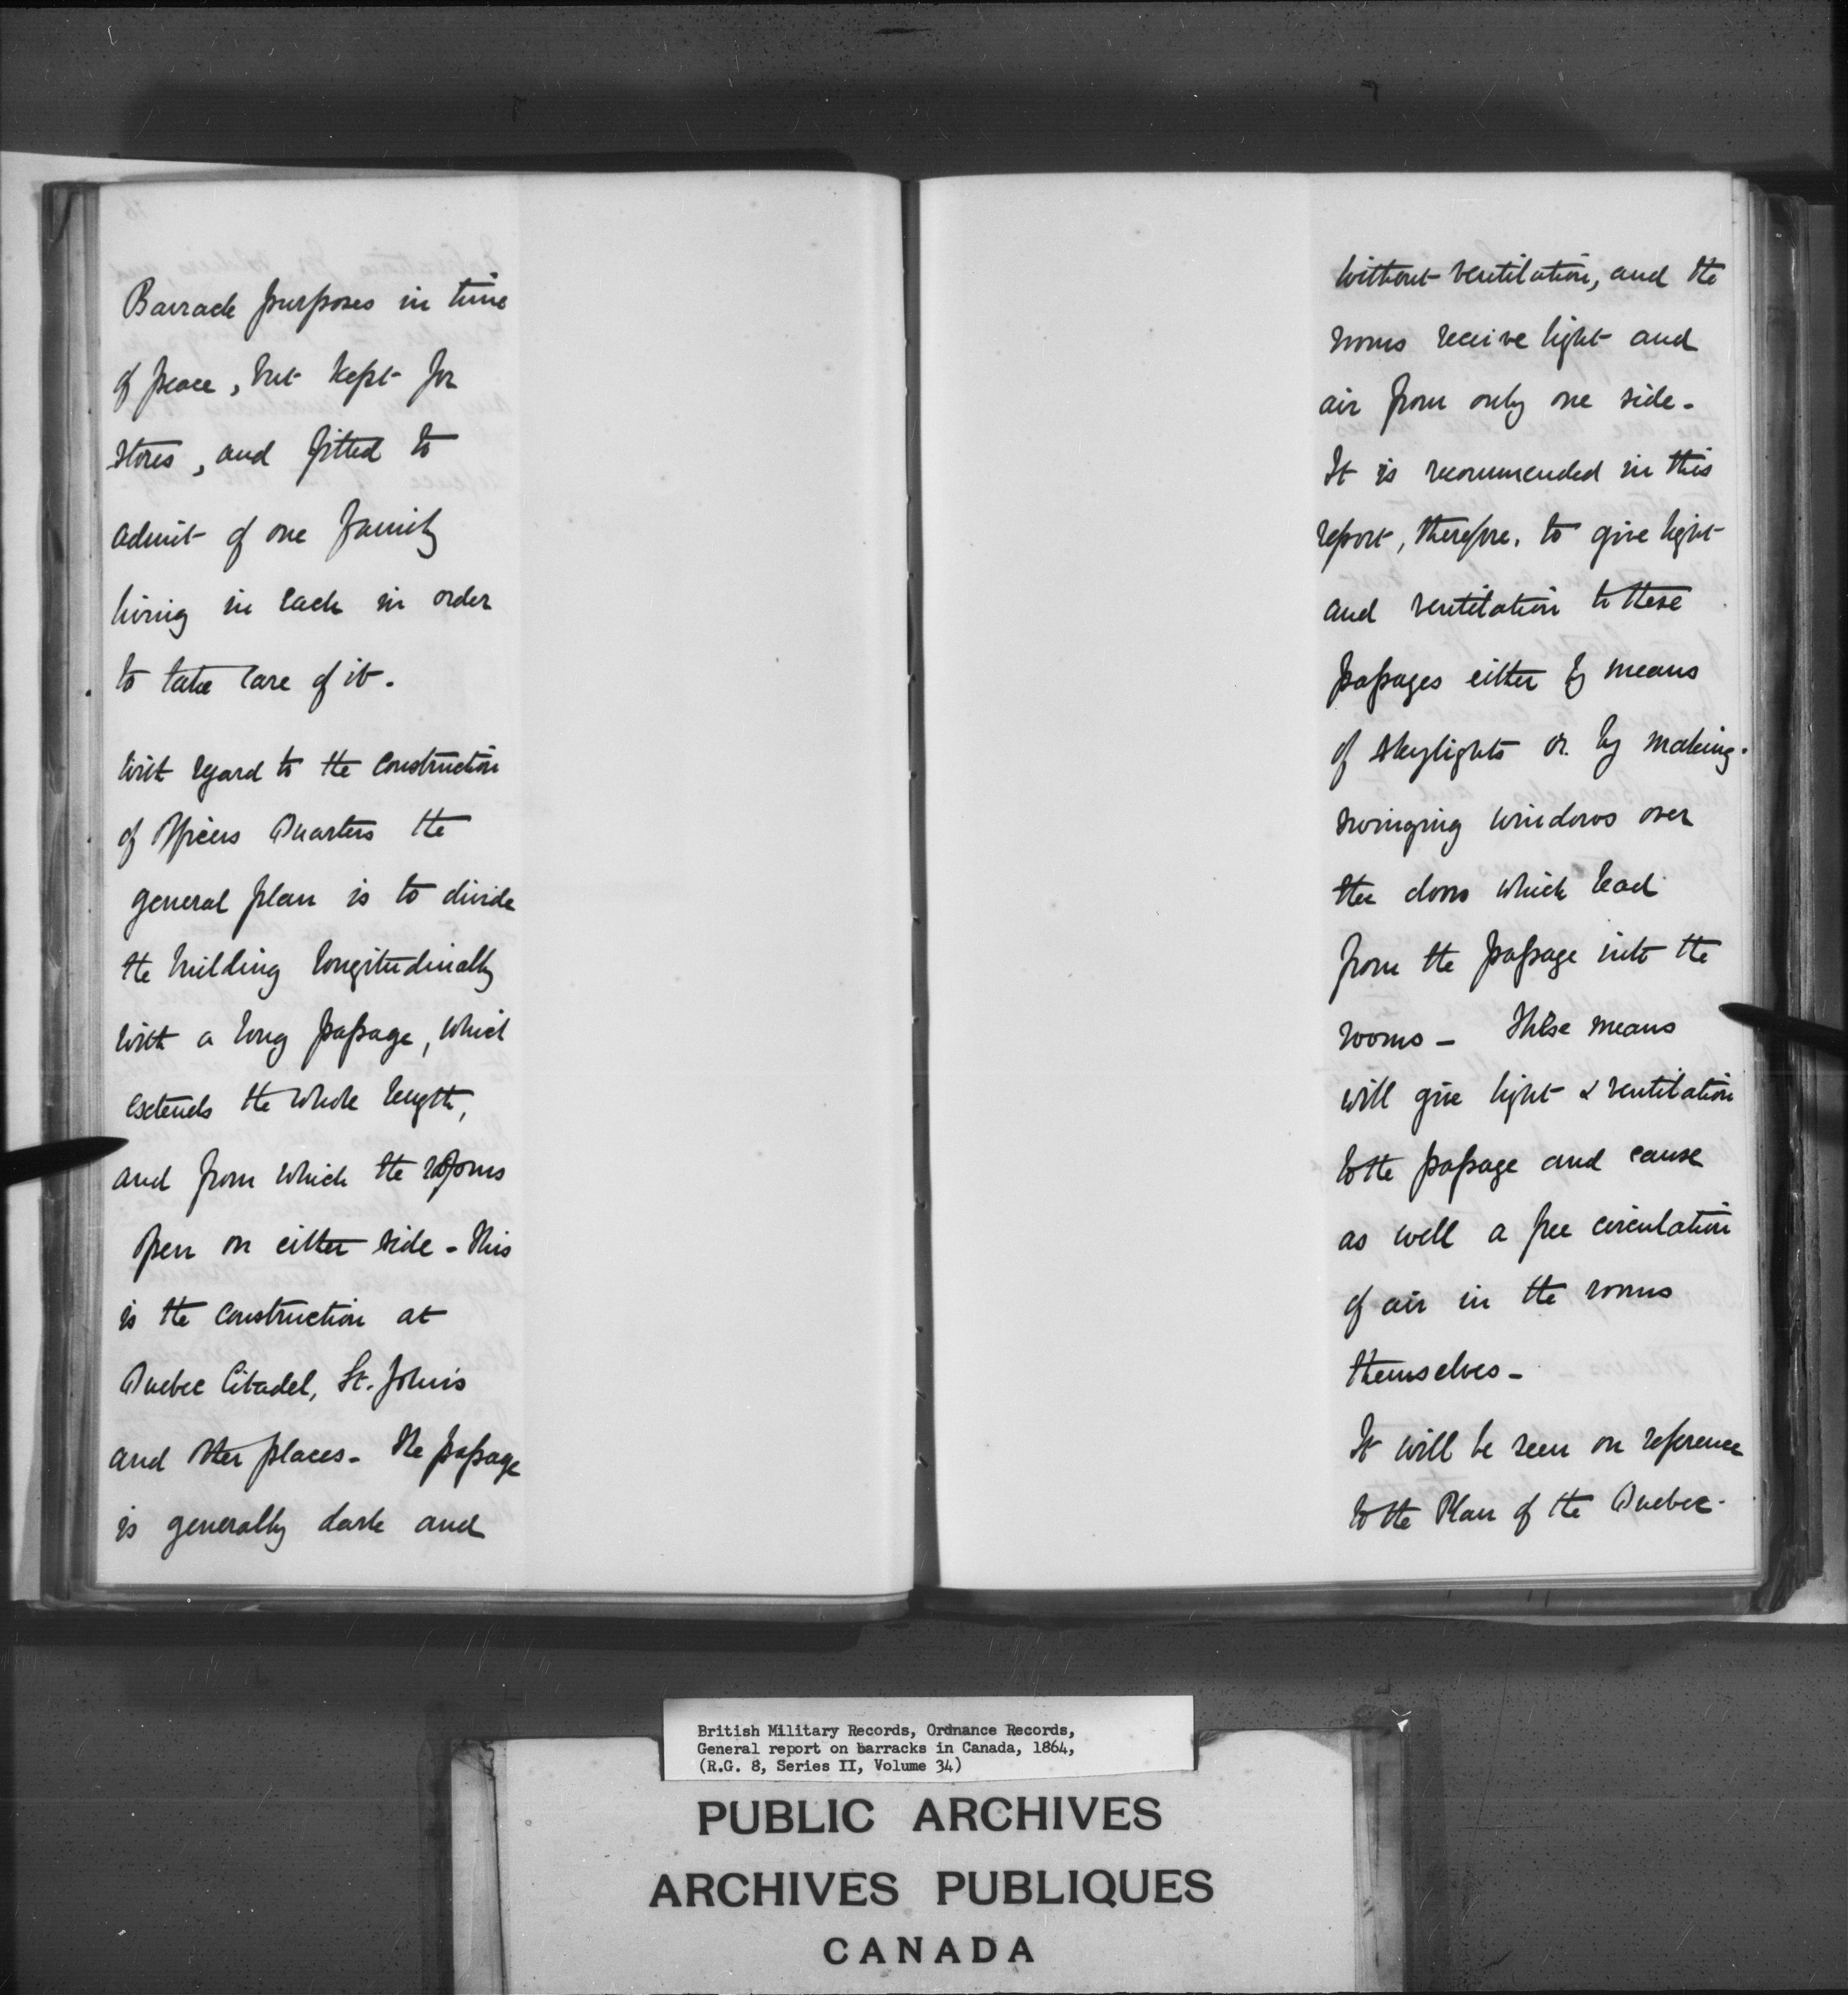 Barrack purposes in time
of peace, but kept for
stores, and fitted to
admit of one family
living in each in order
to take care of it.
With regard to the construction
of Officers Quarters the
general plan is to divide
the building longitudinally
with a long passage, which
extends the whole length,
and from which the rooms
open on either side - This
is the construction at
Quebec Citadel, St. John's
and other places - The passage
is generally dark and
without ventilation, and the
rooms receive light and
air from only one side -
It is recommended in this
report, therefore, to give light
and ventilation to these
passages either by means
of skylights or by making
swinging windows over
the doors which lead
from the passage into the
rooms - These means
will give light & ventilation
to the passage and cause
as well a free circulation
of air in the rooms
themselves -
It will be seen on reference
to the Plan of the Quebec
British Military Records, Ordnance Records,
General report on barracks in Canada, 1864,
(R.G. 8, Series II, Volume 34)
PUBLIC ARCHIVES
ARCHIVES PUBLIQUES
CANADA